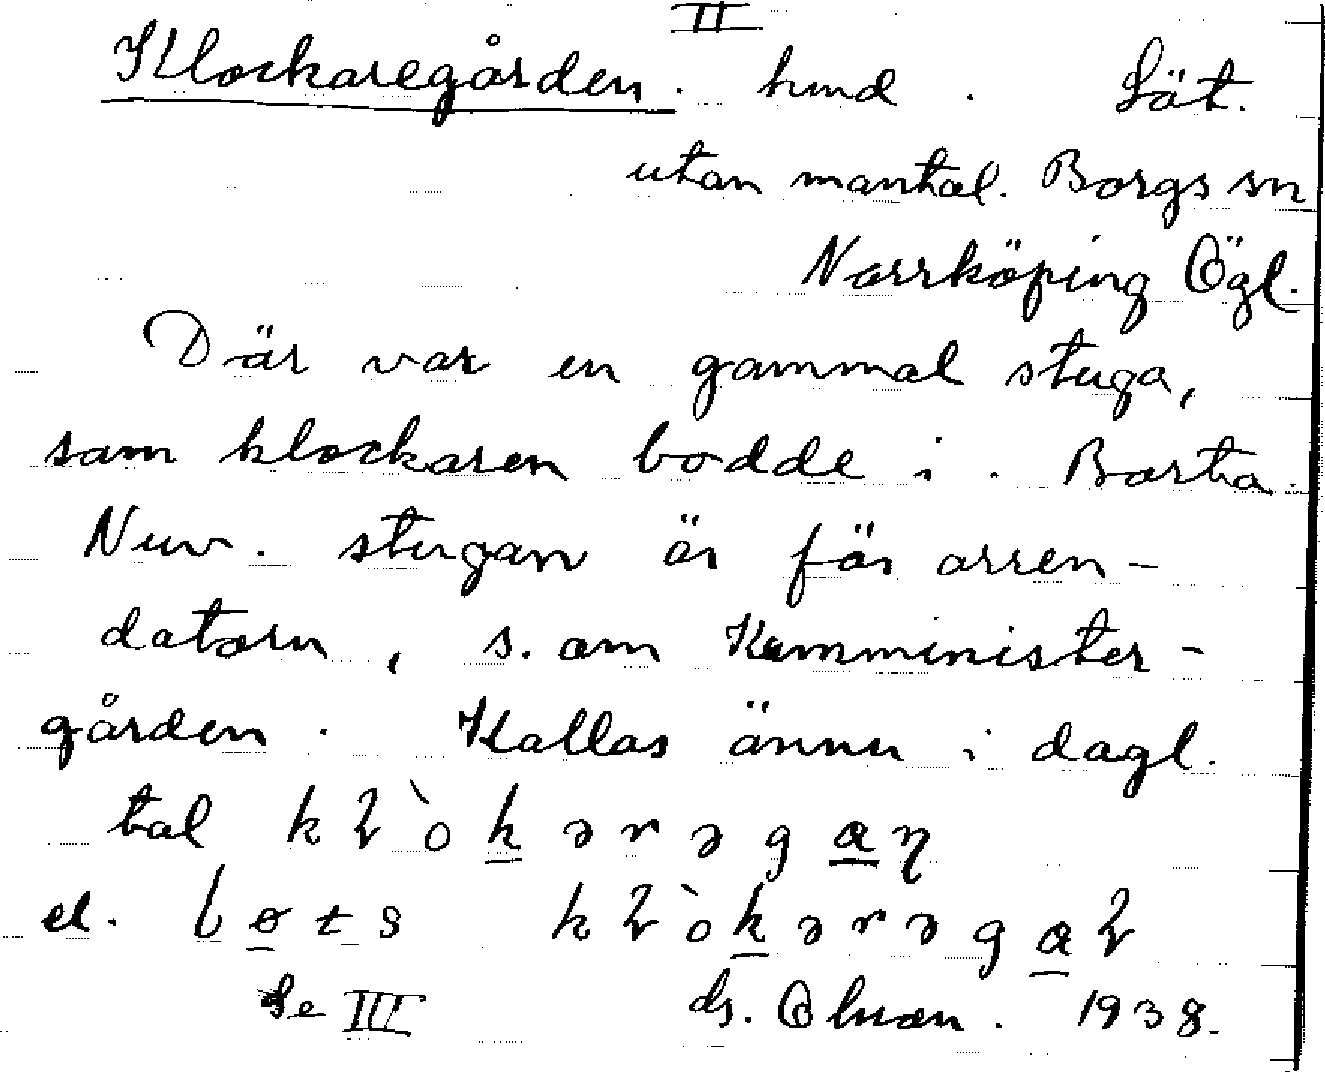 II
Klockaregården. hmd. Löt.
utan mantal. Borgs sn
Norrköping Ögl.
Där var en gammal stuga,
som klockaren bodde i. Borta.
Nuv. stugan är för arren-
datorn, s. om Komminister-
gården. Kallas ännu i dagl.
tal
el.
Se III 1938.